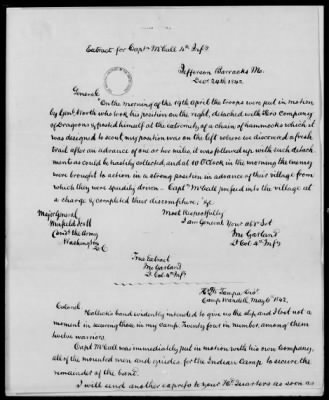 Extract for Captn McCall 4th Infy
Jefferson Barracks Mo.
Decr 24th 1842.
General.
"On the morning of the 19th April the troops were put in motion
by Genl. Worth who took his position on the right, detached with Ker's Company
of Dragoons & posted himself at the extremity of a chain of hammocks which it
was designed to scout, my position was on the left where we discovered a fresh
trail after an advance of one or two miles, it was followed up with such detach-
ments as could be hastily collected, and at 10 O'Clock in the morning the enemy
were brought to action in a strong position in advance of their village from
which they were speedily driven - Captn McCall pressed into the village at
a charge & completed their discomfiture; &c
Most Respectfully
I am General Your Obt Svt
Major General
Winfield Scott
Comd the Army
Washington
D.C
Mc Garland
Lt Col: 4th Infy
True Extract
Mc Garland
Lt Col: 4th Infy
Tampa
Camp Wardell May 6th 1842.
Colonel.
Hallack's band evidently intended to give us the slip and I lost not a
moment in securing those in my Camp. Twenty four in number among them
twelve warriors.
Captn McCall was immediately put in motion with his own Company,
all of the mounted men and guides for the Indian Camp to secure the
remainder of the band.
I will send another express to your Hd Quarters as soon as